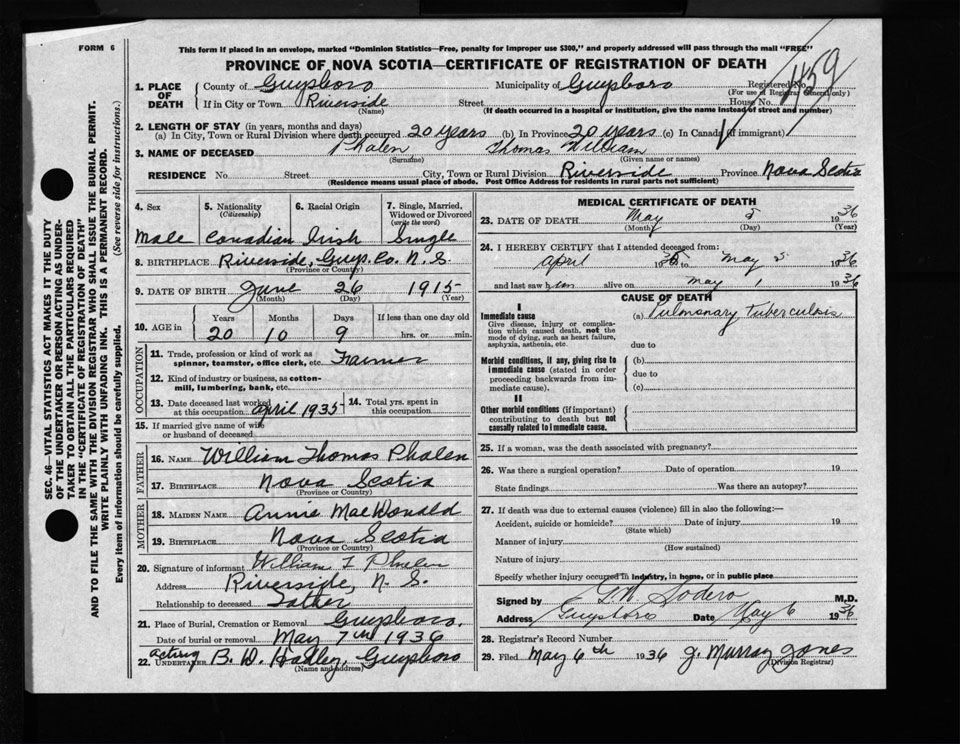 FORM 6
This form if placed in an envelope, marked "Dominion Statistics—Free, penalty for improper use $300," and properly addressed will pass through the mail "FREE"
PROVINCE OF NOVA SCOTIA—CERTIFICATE OF REGISTRATION OF DEATH
1. PLACE OF DEATH County of Guysboro Municipality of Guysboro Registered No. 459
(For use of Registrar General only)
If in City or Town Riverside Street House No.
(Name) (If death occurred in a hospital or institution, give the name instead of street and number)
2. LENGTH OF STAY (in years, months and days)
(a) In City, Town or Rural Division where death occurred 20 years (b) In Province 20 years (c) In Canada (if immigrant)
3. NAME OF DECEASED Phalen Thomas William
(Surname) (Given name or names)
RESIDENCE No. Street City, Town or Rural Division Riverside Province Nova Scotia
(Residence means usual place of abode. Post Office Address for residents in rural parts not sufficient)
4. Sex 5. Nationality (Citizenship) 6. Racial Origin 7. Single, Married, Widowed or Divorced (write the word)
Male Canadian Irish Single
8. BIRTHPLACE Riverside, Guys. Co. N. S.
(Province or Country)
9. DATE OF BIRTH June 26 1915
(Month) (Day) (Year)
10. AGE in Years Months Days If less than one day old
20 10 9 hrs. or min.
OCCUPATION
11. Trade, profession or kind of work as spinner, teamster, office clerk, etc. Farmer
12. Kind of industry or business, as cotton-mill, lumbering, bank, etc.
13. Date deceased last worked at this occupation April 1935 14. Total yrs. spent in this occupation
15. If married give name of wife or husband of deceased
FATHER
16. NAME William Thomas Phalen
17. BIRTHPLACE Nova Scotia
(Province or Country)
MOTHER
18. MAIDEN NAME Annie MacDonald
19. BIRTHPLACE Nova Scotia
(Province or Country)
20. Signature of informant William T Phalen
Address Riverside, N. S.
Relationship to deceased Father
21. Place of Burial, Cremation or Removal Guysboro.
Date of burial or removal May 7th 1936
22. acting UNDERTAKER B. D. Hadley, Guysboro
(Name and address)
MEDICAL CERTIFICATE OF DEATH
23. DATE OF DEATH May 5 1936
(Month) (Day) (Year)
24. I HEREBY CERTIFY that I attended deceased from:
April 1935 to May 5 1936
and last saw him alive on May 1 1936
CAUSE OF DEATH
I
Immediate cause (a) Pulmonary Tuberculosis
Give disease, injury or complication which caused death, not the mode of dying, such as heart failure, asphyxia, asthenia, etc.
due to
Morbid conditions, if any, giving rise to immediate cause (stated in order proceeding backwards from immediate cause). (b)
due to
(c)
II
Other morbid conditions (if important) contributing to death but not causally related to immediate cause.
25. If a woman, was the death associated with pregnancy?
26. Was there a surgical operation? Date of operation 19
State findings Was there an autopsy?
27. If death was due to external causes (violence) fill in also the following:—
Accident, suicide or homicide? Date of injury 19
(State which)
Manner of injury
(How sustained)
Nature of injury
Specify whether injury occurred in industry, in home, or in public place
Signed by Sodero M.D.
Address Guysboro Date May 6 1936
28. Registrar's Record Number
29. Filed May 6th 1936 J. Murray Jones
(Division Registrar)
SEC. 46—VITAL STATISTICS ACT MAKES IT THE DUTY
OF THE UNDERTAKER OR PERSON ACTING AS UNDER-
TAKER TO OBTAIN ALL THE PARTICULARS REQUIRED
IN THE "CERTIFICATE OF REGISTRATION OF DEATH"
AND TO FILE THE SAME WITH THE DIVISION REGISTRAR WHO SHALL ISSUE THE BURIAL PERMIT.
WRITE PLAINLY WITH UNFADING INK. THIS IS A PERMANENT RECORD.
Every item of information should be carefully supplied. (See reverse side for instructions.)